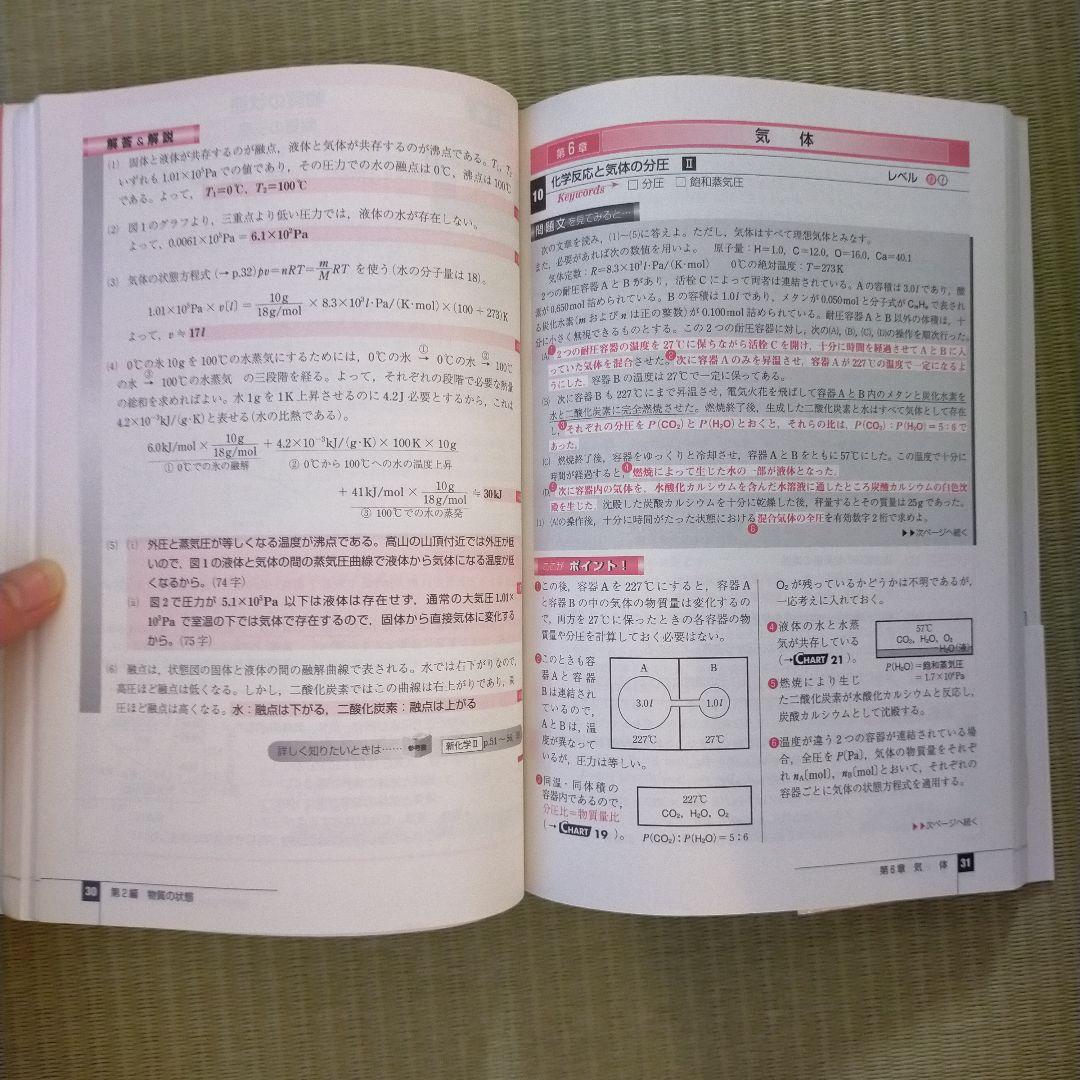 解答&解説
(1) 固体と液体が共存するのが融点，液体と気体が共存するのが沸点である。T₁，T₂
いずれも1.01×10⁵Paでの値であり，その圧力での水の融点は0℃，沸点は100℃
である。よって，T₁=0℃，T₂=100℃
(2) 図1のグラフより，三重点より低い圧力では，液体の水が存在しない。
よって，0.0061×10⁵Pa=6.1×10²Pa
(3) 気体の状態方程式(→p.32)pv=nRT=m/M RT を使う(水の分子量は18)。
1.01×10⁵Pa×v〔l〕=10g/18g/mol×8.3×10³l·Pa/(K·mol)×(100+273)K
よって，v≒17l
(4) 0℃の氷10gを100℃の水蒸気にするためには，0℃の氷 ①→ 0℃の水 ②→ 100℃
の水 ③→ 100℃の水蒸気 の三段階を経る。よって，それぞれの段階で必要な熱量
の総和を求めればよい。水1gを1K上昇させるのに4.2J必要とするから，これは
4.2×10⁻³kJ/(g·K)と表せる(水の比熱である)。
6.0kJ/mol×10g/18g/mol+4.2×10⁻³kJ/(g·K)×100K×10g
① 0℃での氷の融解 ② 0℃から100℃への水の温度上昇
+41kJ/mol×10g/18g/mol≒30kJ
③ 100℃での水の蒸発
(5) (i) 外圧と蒸気圧が等しくなる温度が沸点である。高山の山頂付近では外圧が低
いので，図1の液体と気体の間の蒸気圧曲線で液体から気体になる温度が低
くなるから。(74字)
(ii) 図2で圧力が 5.1×10⁵Pa 以下は液体は存在せず，通常の大気圧1.01×
10⁵Paで室温の下では気体で存在するので，固体から直接気体に変化する
から。(75字)
(6) 融点は，状態図の固体と液体の間の融解曲線で表される。水では右下がりなので，
高圧ほど融点は低くなる。しかし，二酸化炭素ではこの曲線は右上がりであり，高
圧ほど融点は高くなる。水：融点は下がる，二酸化炭素：融点は上がる
詳しく知りたいときは…… 参考書 新化学Ⅱ p.51～56
30 第2編 物質の状態
第6章 気 体
10 化学反応と気体の分圧 Ⅱ レベル
Keywords → □分圧 □飽和蒸気圧
問題文を見てみると…
次の文章を読み，(1)～(5)に答えよ。ただし，気体はすべて理想気体とみなす。
また，必要があれば次の数値を用いよ。 原子量：H=1.0，C=12.0，O=16.0，Ca=40.1
気体定数：R=8.3×10³l·Pa/(K·mol) 0℃の絶対温度：T=273K
2つの耐圧容器AとBがあり，活栓Cによって両者は連結されている。Aの容積は3.0lであり，酸
素が0.650mol詰められている。Bの容積は1.0lであり，メタンが0.050molと分子式がCmHnで表され
る炭化水素(mおよびnは正の整数)が0.100mol詰められている。耐圧容器AとB以外の体積は，十
分に小さく無視できるものとする。この2つの耐圧容器に対し，次の(A)，(B)，(C)，(D)の操作を順次行った。
(A) ❶2つの耐圧容器の温度を27℃に保ちながら活栓Cを開け，十分に時間を経過させてAとBに入
っていた気体を混合させた。❷次に容器Aのみを昇温させ，容器Aが227℃の温度で一定になるよ
うにした。容器Bの温度は27℃で一定に保ってある。
(B) 次に容器Bも227℃にまで昇温させ，電気火花を飛ばして容器AとB内のメタンと炭化水素を
水と二酸化炭素に完全燃焼させた。燃焼終了後，生成した二酸化炭素と水はすべて気体として存在
し，❸それぞれの分圧をP(CO₂)とP(H₂O)とおくと，それらの比は，P(CO₂)：P(H₂O)=5：6で
あった。
(C) 燃焼終了後，容器をゆっくりと冷却させ，容器AとBをともに57℃にした。この温度で十分に
時間が経過すると，❹燃焼によって生じた水の一部が液体となった。
(D) ❺次に容器内の気体を，水酸化カルシウムを含んだ水溶液に通したところ炭酸カルシウムの白色沈
殿を生じた。沈殿した炭酸カルシウムを十分に乾燥した後，秤量するとその質量は25gであった。
(1) (A)の操作後，十分に時間がたった状態における混合気体の全圧を有効数字2桁で求めよ。
❻
▶▶次ページへ続く
ここが ポイント！
❶この後，容器Aを227℃にすると，容器A
と容器Bの中の気体の物質量は変化するの
で，両方を27℃に保ったときの各容器の物
質量や分圧を計算しておく必要はない。
❷このときも容
器Aと容器
Bは連結され
ているので，
AとBは，温
度が異なって
いるが，圧力は等しい。
A B
3.0l 1.0l
227℃ 27℃
❸同温・同体積の
容器内であるので，
分圧比=物質量比
(→CHART 19)。
227℃
CO₂，H₂O，O₂
P(CO₂)：P(H₂O)=5：6
O₂が残っているかどうかは不明であるが，
一応考えに入れておく。
❹液体の水と水蒸
気が共存している
(→CHART 21)。
57℃
CO₂，H₂O，O₂
H₂O(液)
P(H₂O)=飽和蒸気圧
=1.7×10⁴Pa
❺燃焼により生じ
た二酸化炭素が水酸化カルシウムと反応し，
炭酸カルシウムとして沈殿する。
❻温度が違う2つの容器が連結されている場
合，全圧をP〔Pa〕，気体の物質量をそれぞ
れnA〔mol〕，nB〔mol〕とおいて，それぞれの
容器ごとに気体の状態方程式を適用する。
▶▶次ページへ続く
第6章 気 体 31